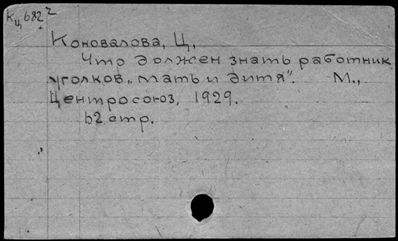 Кц682²
Коновалова, Ц.
Что должен знать работник
уголков „Мать и дитя". М.,
Центросоюз, 1929.
62 стр.